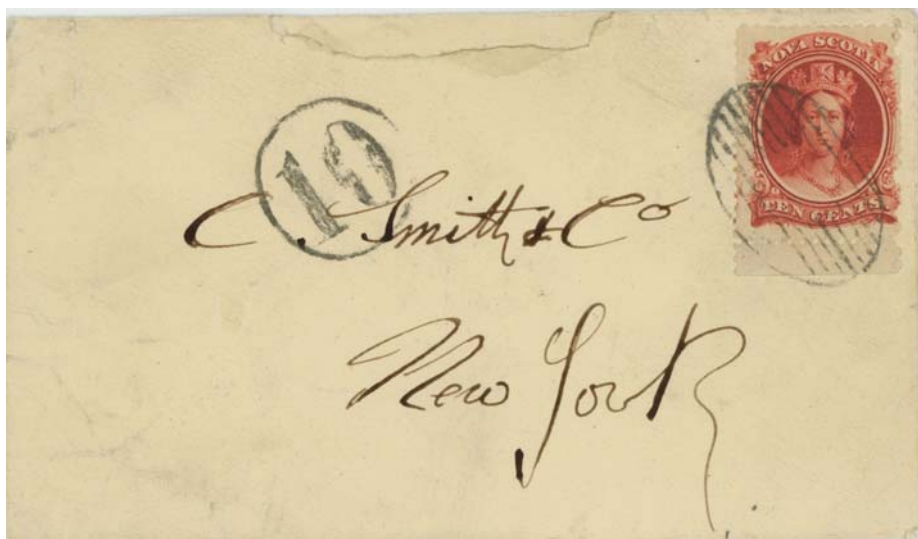 NOVA SCOTIA
TEN CENTS
10
C. Smith & Co
New York